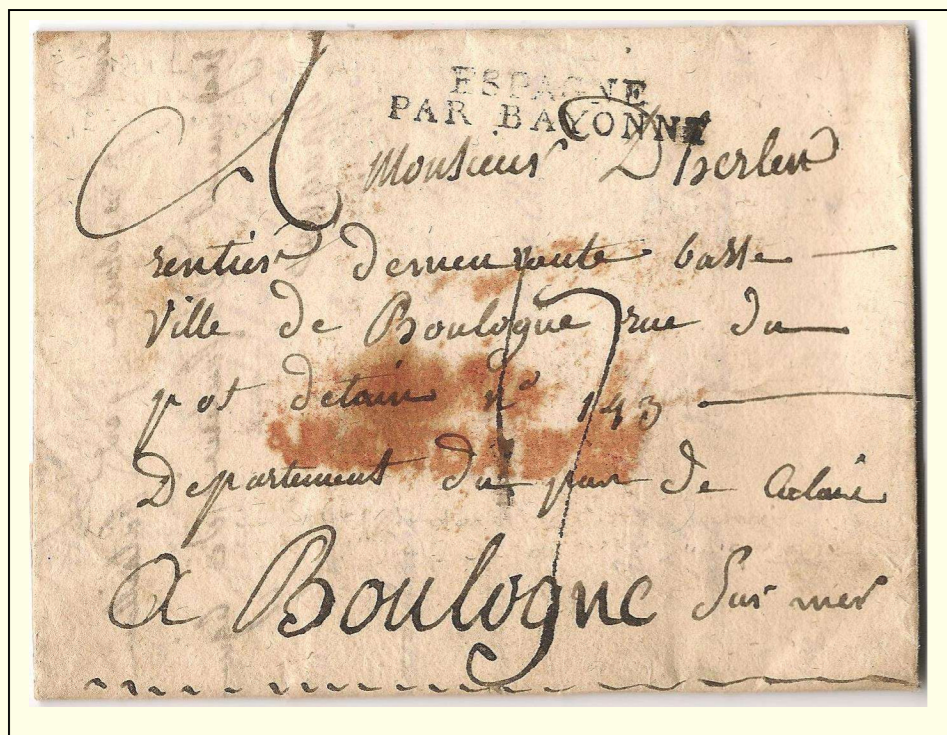 ESPAGNE
PAR BAYONNE
A
Monsieur Dherlen
rentier demeurante basse
ville de Boulogne rue du
pot detain n° 143
Departement du pas de Calais
a Boulogne Sur mer
17